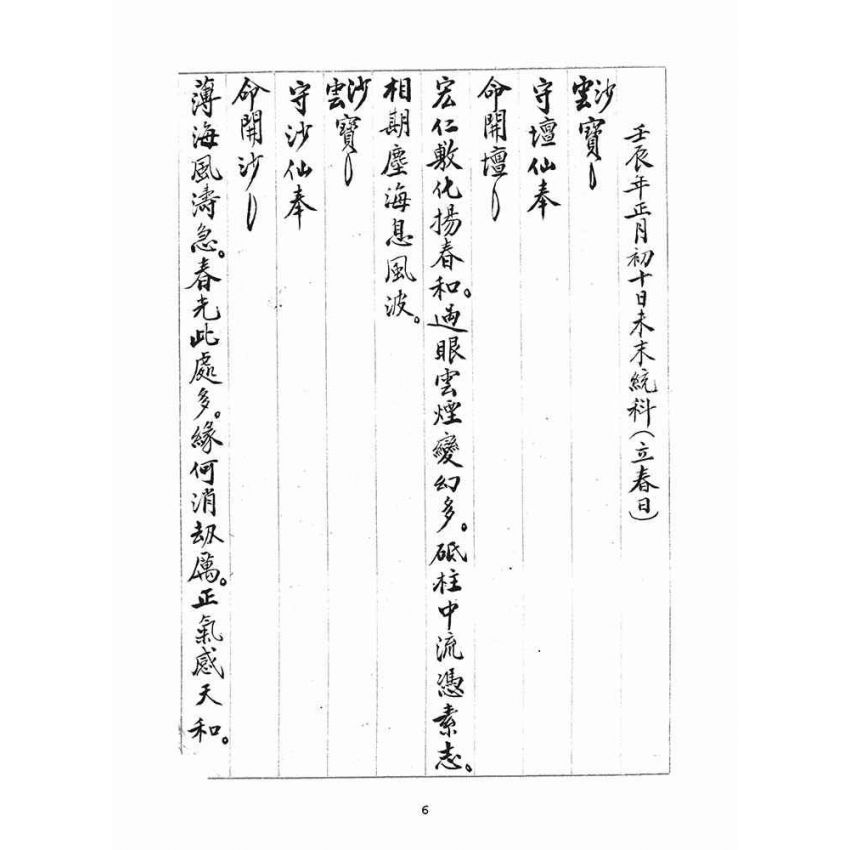 壬辰年正月初十日未末統科(立春日)
雲沙寶
守壇仙奉
命開壇
宏仁敷化揚春和。過眼雲煙變幻多。砥柱中流憑素志。
相期塵海息風波。
雲沙寶
守沙仙奉
命開沙
薄海風濤急。春光此處多。緣何消劫厲。正氣感天和。
6